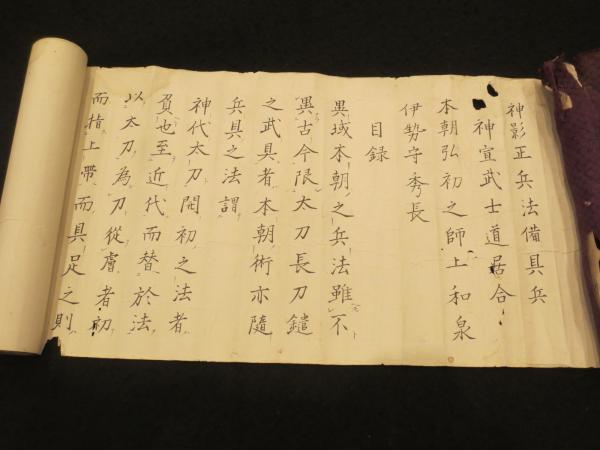 神影正兵法備具兵
神宣武士道居合
本朝弘初之師上和泉
伊勢守秀長
目録
異域本朝之兵法雖不
異古今限太刀長刀鑓
之武具者本朝術亦隨
兵具之法謂
神代太刀開初之法者
負也至近代而替於法
以太刀為刀從膚者初
而指上帶而具足之則